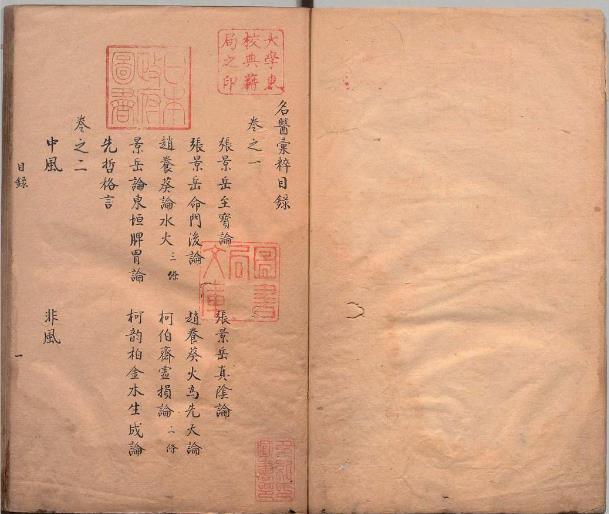 大學東校典籍局之印
日本政府圖書
圖書局文庫
名醫彙粹目錄
卷之一
張景岳至寶論　張景岳真陰論
張景岳命門後論　趙養葵火為先天論
趙養葵論水火三條　柯伯齋虛損論二條
景岳論東垣脾胃論　柯韵柏金水生成論
先哲格言
卷之二
中風　非風
目錄
一